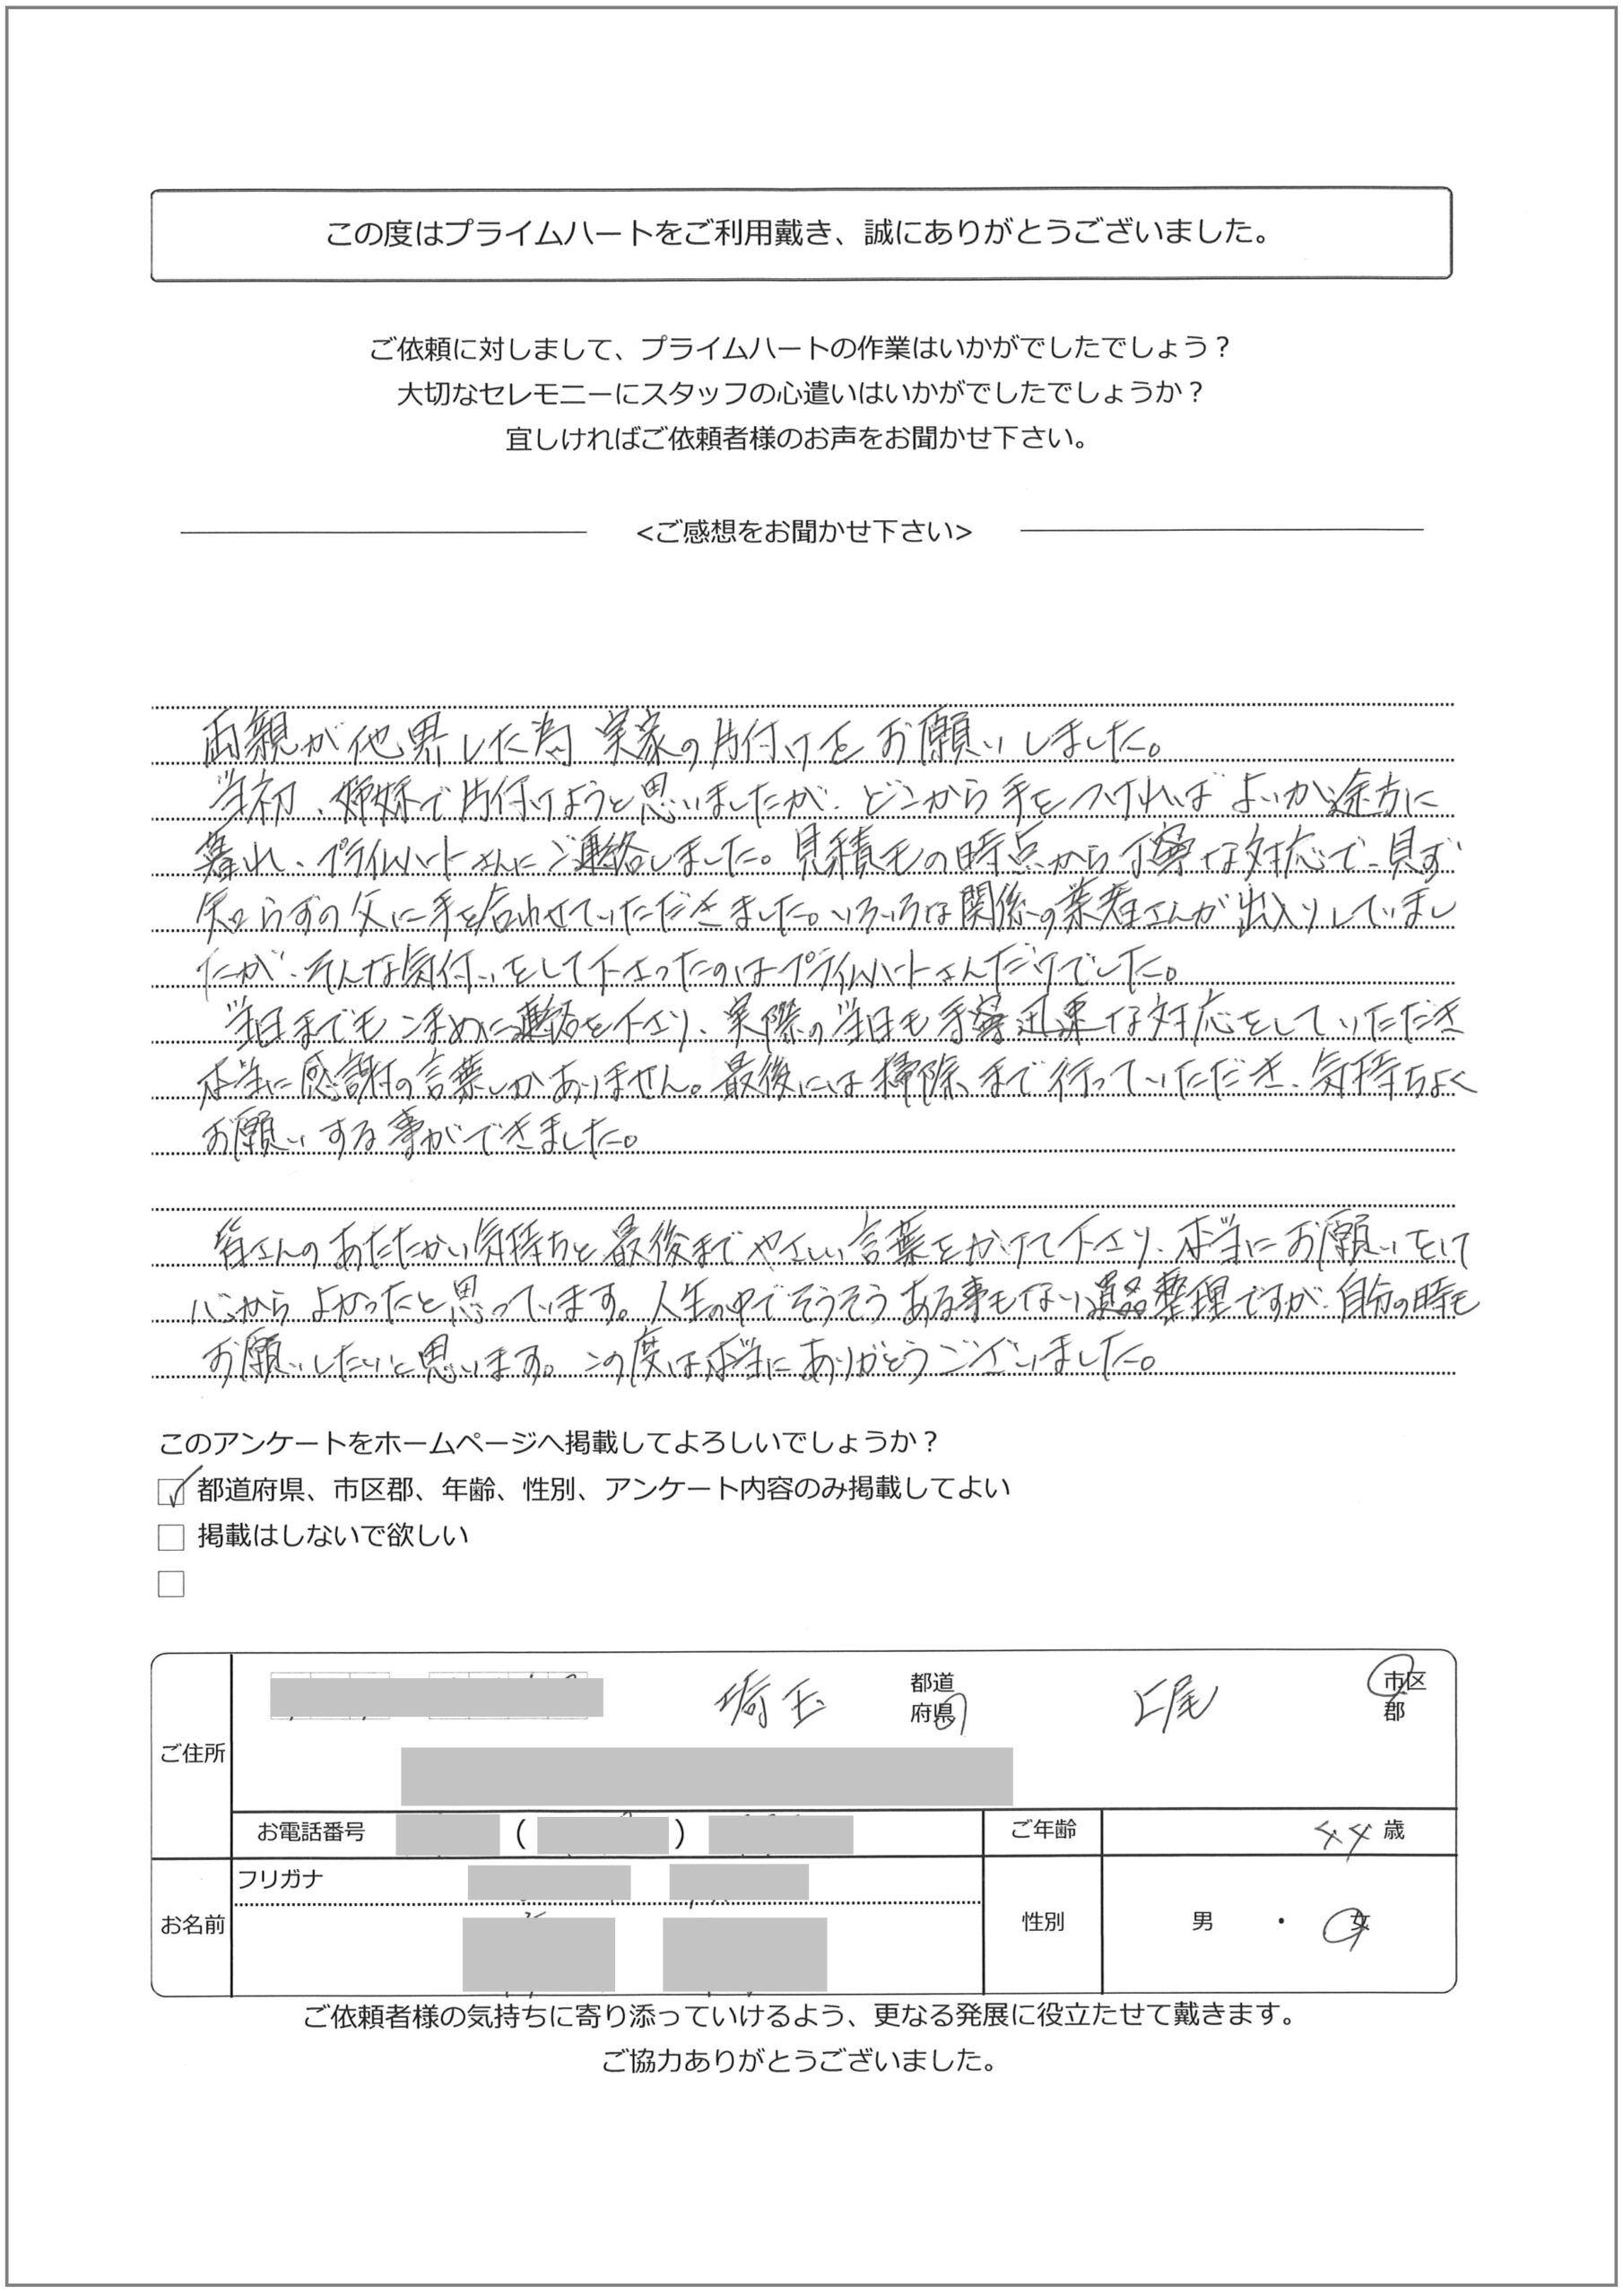 この度はプライムハートをご利用戴き、誠にありがとうございました。
ご依頼に対しまして、プライムハートの作業はいかがでしたでしょう？
大切なセレモニーにスタッフの心遣いはいかがでしたでしょうか？
宜しければご依頼者様のお声をお聞かせ下さい。
<ご感想をお聞かせ下さい>
両親が他界した為 実家の片付けをお願いしました。
当初、姉妹で片付けようと思いましたが、どこから手をつければよいか途方に
暮れ、プライムハートさんにご連絡しました。見積もの時点から丁寧な対応で、見ず
知らずの父に手を合わせていただきました。いろいろな関係の業者さんが出入りしていまし
たが、そんな気付いをして下さったのはプライムハートさんだけでした。
当日までもこまめに連絡を下さり、実際の当日も手寧迅速な対応をしていただき
本当に感謝の言葉しかありません。最後には掃除まで行っていただき、気持ちよく
お願いする事ができました。
皆さんのあたたかい気持ちと最後までやさしい言葉をかけて下さり、本当にお願いをして
心からよかったと思っています。人生の中でそうそうある事もない遺品整理ですが、自分の時も
お願いしたいと思います。この度は本当にありがとうございました。
このアンケートをホームページへ掲載してよろしいでしょうか？
都道府県、市区郡、年齢、性別、アンケート内容のみ掲載してよい
掲載はしないで欲しい
ご住所
埼玉 都道府県 上尾 市区郡
お電話番号 ( ) ご年齢 44 歳
フリガナ
お名前 性別 男 ・ 女
ご依頼者様の気持ちに寄り添っていけるよう、更なる発展に役立たせて戴きます。
ご協力ありがとうございました。